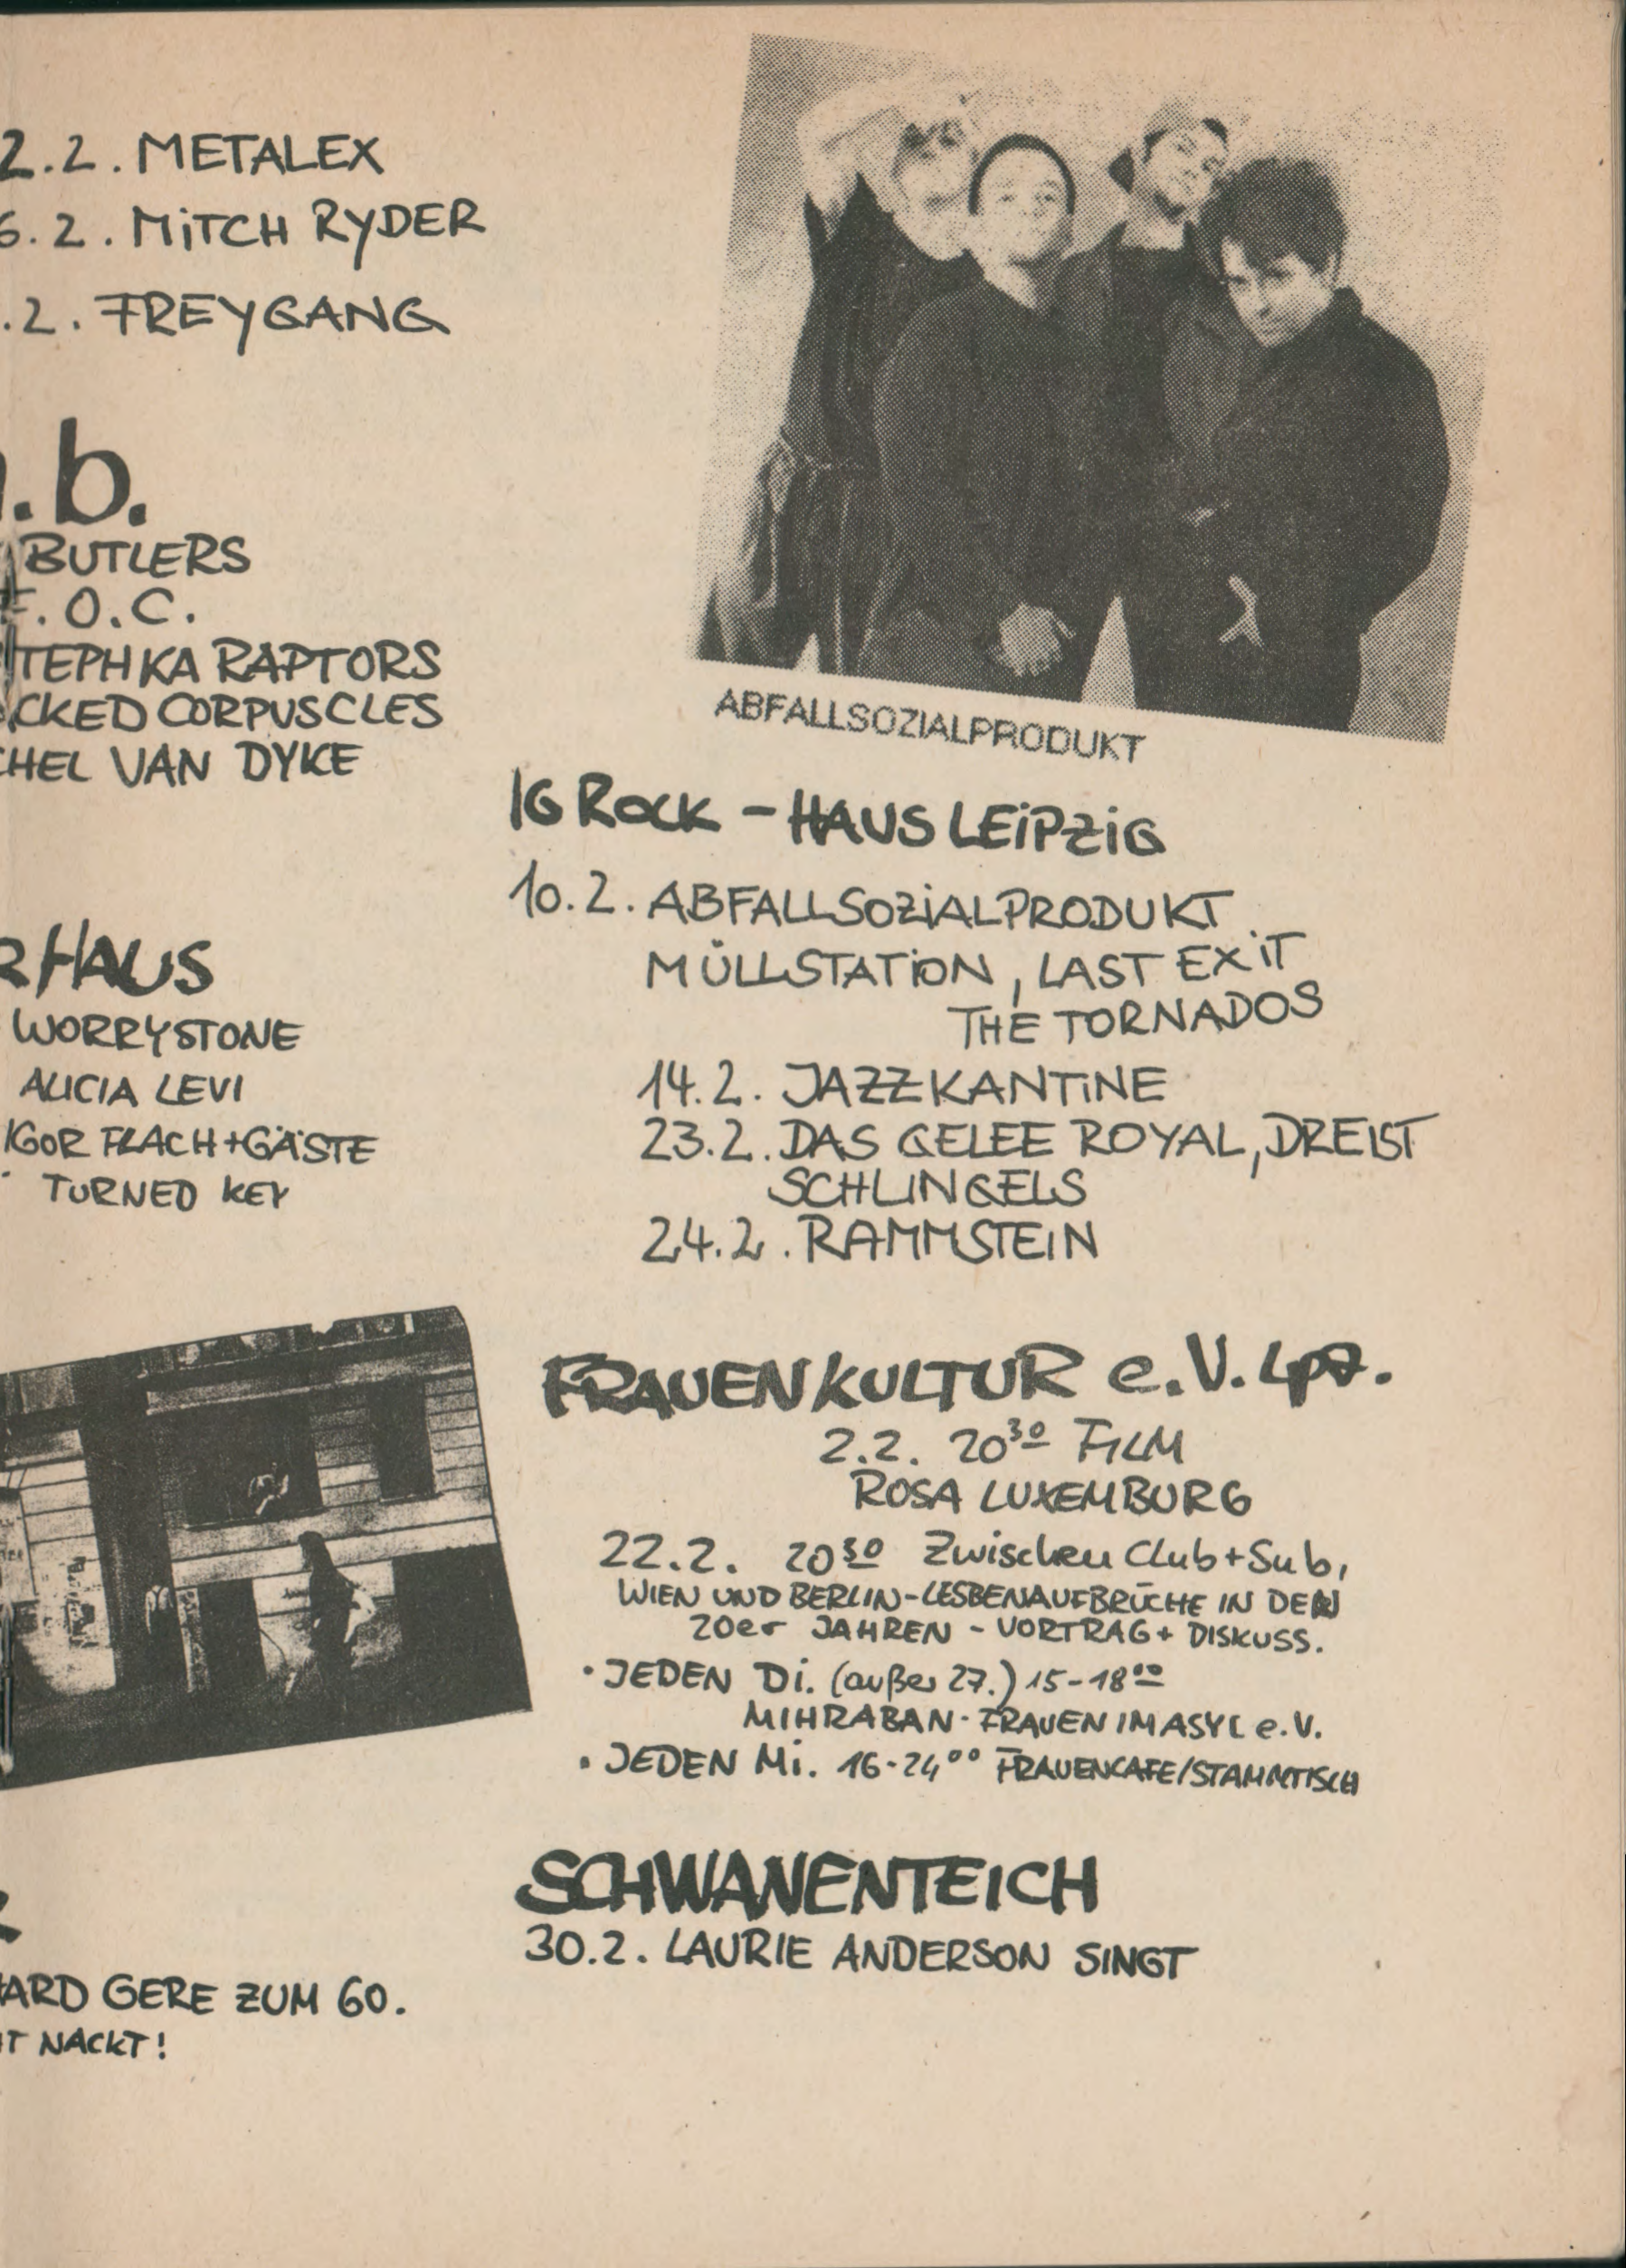 2.2. METALEX
6.2. MITCH RYDER
.2. FREYGANG
.b.
BUTLERS
F.O.C.
TEPHKA RAPTORS
CKED CORPUSCLES
CHEL VAN DYKE
RHAUS
WORRYSTONE
ALICIA LEVI
IGOR FLACH+GÄSTE
TURNED KEY
ARD GERE ZUM 60.
T NACKT!
ABFALLSOZIALPRODUKT
IG ROCK - HAUS LEIPZIG
10.2. ABFALLSOZIALPRODUKT
MÜLLSTATION, LAST EXIT
THE TORNADOS
14.2. JAZZKANTINE
23.2. DAS GELEE ROYAL, DREIST
SCHLINGELS
24.2. RAMMSTEIN
FRAUENKULTUR e.V. Lpz.
2.2. 20³⁰ FILM
ROSA LUXEMBURG
22.2. 20³⁰ Zwischen Club+Sub,
WIEN UND BERLIN-LESBENAUFBRÜCHE IN DEN
20er JAHREN - VORTRAG+ DISKUSS.
· JEDEN Di. (außer 27.) 15-18⁰⁰
MIHRABAN- FRAUEN IM ASYL e.V.
· JEDEN Mi. 16-24⁰⁰ FRAUENCAFE/STAMMTISCH
SCHWANENTEICH
30.2. LAURIE ANDERSON SINGT